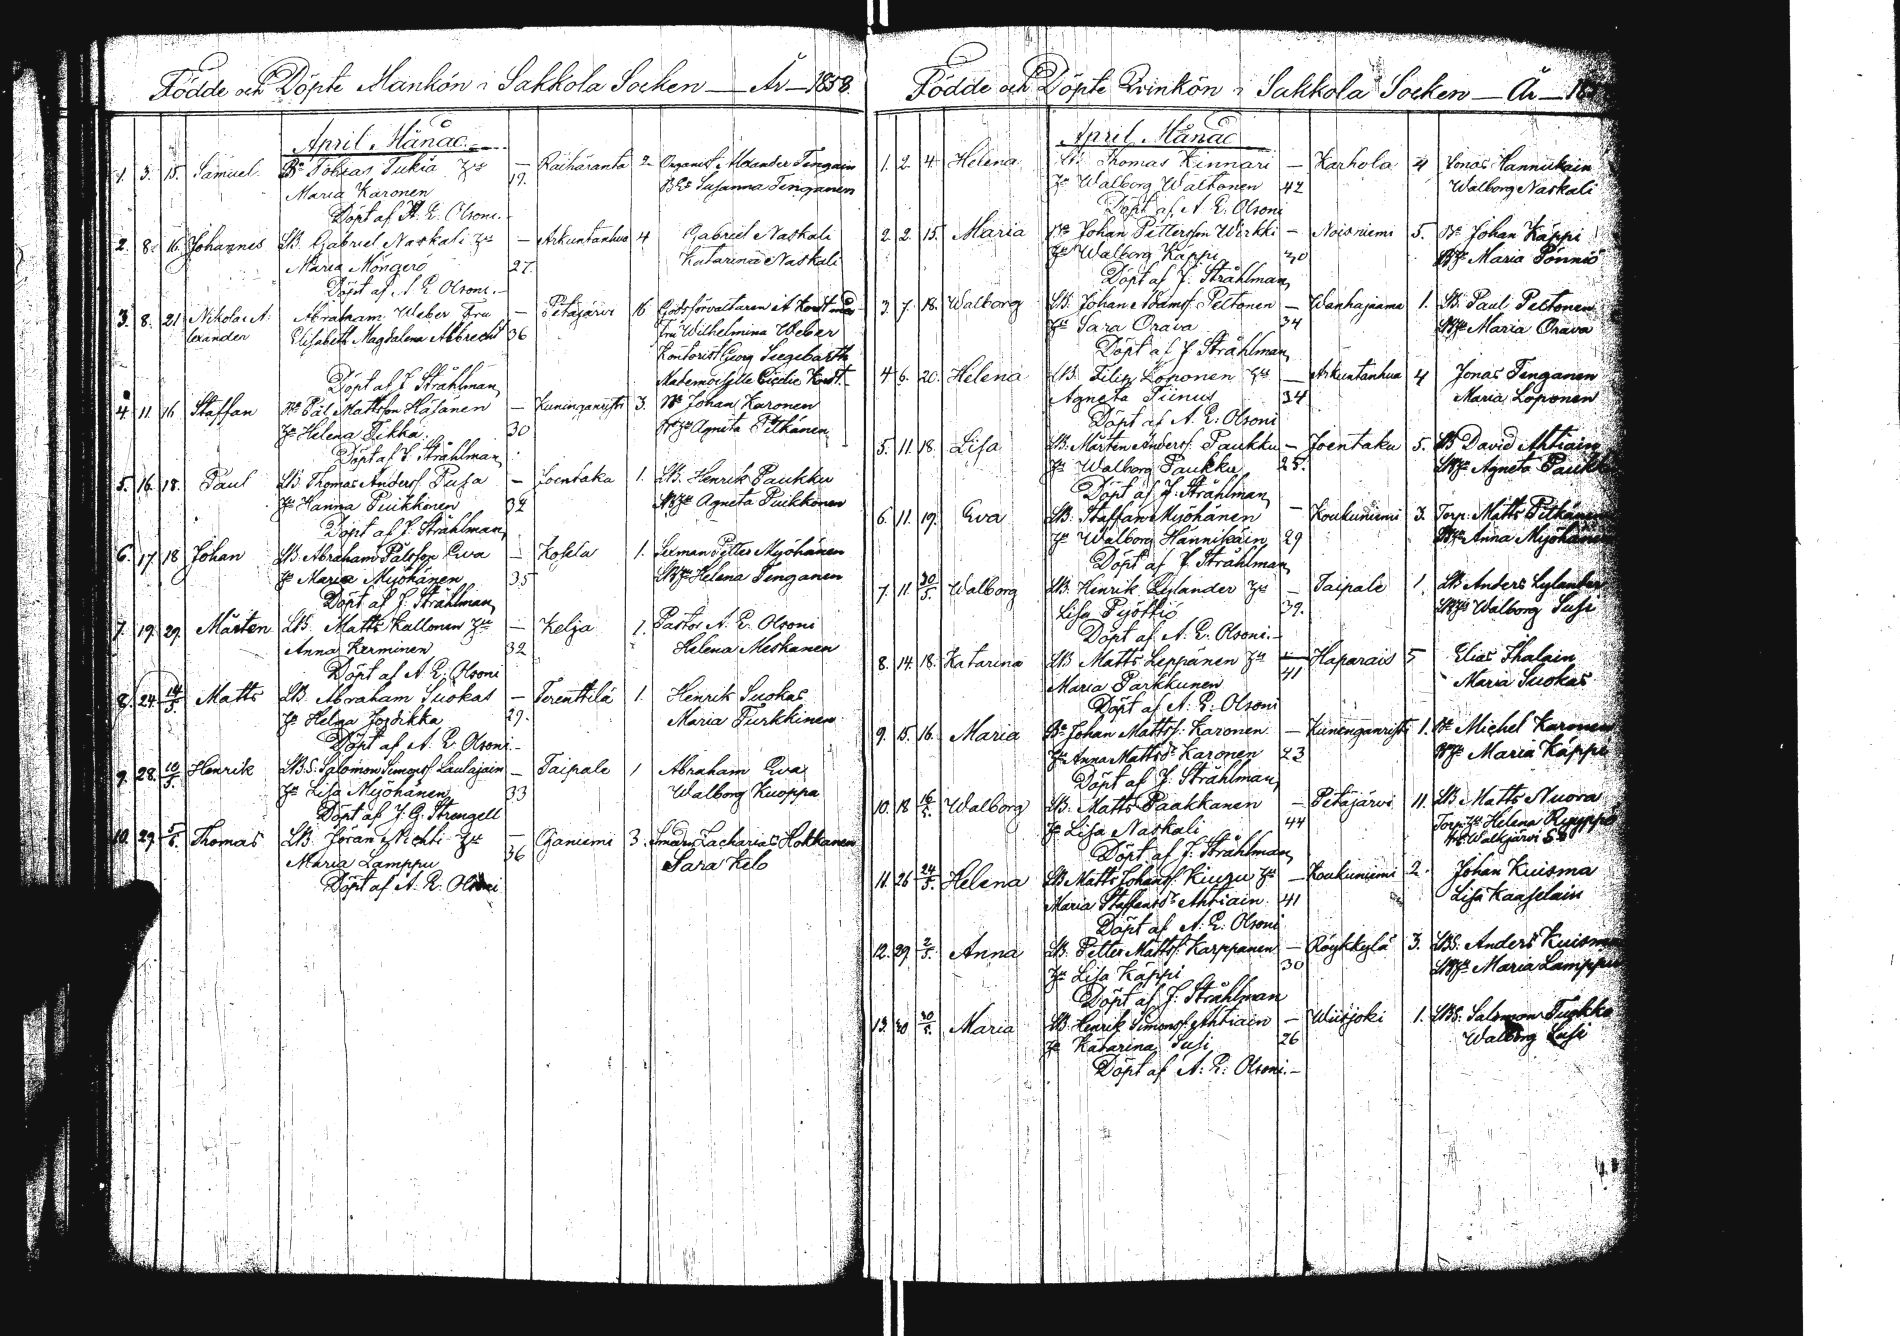 Födde och Döpte Mankön i Sakkola Socken — År — 1858.
April Månad.
1. 3. 15. Samuel Bd. Tobias Tukia Hu — Raiharanta 2
Maria Karonen 19. Susanna Tenganen
Döpt af A. E. Olsoni.
2. 8. 16. Johannes LB. Gabriel Naskali Hu — Arkuntanhua 4 Gabriel Naskali
Maria Möngerö 27. Katarina Naskali
Döpt af A. E. Olsoni.
3. 8. 21 Nikolai A: Abraham Weber Fru — Petäjärvi 16 Godsförvaltaren
lexander Elisabeth Magdalena Albrecht 36 Fru Wilhelmina Weber
Kontorist Georg Siegebarth
Döpt af J. Stråhlman Mademoiselle Cicelie
4. 11. 16 Staffan Bd. Pål Mattsson Häjänen — Kuninganristi 3. Bd. Johan Karonen
Hu Helena Tikka 30 Agneta Pitkänen
Döpt af J. Stråhlman
5. 16. 18. Paul LB. Thomas Anders. Pusa — Joentaka 1. LB. Henrik Paukku
Hu Hanna Puikkonen 32 Agneta Puikkonen
Döpt af J. Stråhlman
6. 17. 18 Johan LB. Abraham Pålsson Ewa — Kosela 1. Petter Myöhänen
Hu Maria Myöhänen 35 Helena Tenganen
Döpt af J. Stråhlman
7. 19. 29. Mårten LB. Matts Kallonen Hu — Kelja 1. Pastor A. E. Olsoni
Anna Karminen 32 Helena Meskanen
Döpt af A. E. Olsoni
8. 24. 14/5. Matts LB. Abraham Suokas — Terenttilä 1. Henrik Suokas
Hu Helena 29. Maria Turkkinen
Döpt af A. E. Olsoni.
9. 28. 10/5. Henrik LBS. Salomon Simons. Laulajain — Taipale 1 Abraham Ewa
Hu Lisa Myöhänen 33 Walborg Kuoppa
Döpt af J. G. Strengell
10. 29. Thomas LB. Göran Ahti Hu — Oganiemi 3. Zacharias Hokkanen
Maria Lamppu 36 Sara Kelo
Döpt af A. E. Olsoni
Födde och Döpte Qvinkön i Sakkola Socken — År — 185
April Månad
1. 2. 4 Helena LB. Thomas Kinnari — Karhola 4 Jonas Hannukain
Hu Walborg Waltonen 42 Walborg Naskali
Döpt af A. E. Olsoni
2. 2. 15. Maria Bd. Johan Petterson Wirkki — Noisniemi 5. Bd. Johan Käppi
Hu Walborg Käppi Maria Pönniö
Döpt af J. Stråhlman
3. 7. 18. Walborg LB. Johan Adams. Peltonen — Wanhajaama 1. LB. Paul Peltonen
Hu Sara Orava 34 Maria Orava
Döpt af J. Stråhlman
4 6. 20. Helena LB. Filip Loponen Hu — Arkuntanhua 4 Jonas Tenganen
Agneta Tiinus 34 Maria Loponen
Döpt af A. E. Olsoni
5. 11. 18. Lisa LB. Mårten Anders. Paukku — Joentaka 5. LB David Ahtiain
Hu Walborg Paukku 25. Agneta Paukku
Döpt af J. Stråhlman
6. 11. 19. Eva LB. Staffan Myöhänen — Koukuniemi 3. Torp. Matts Pitkänen
Hu Walborg Hännikäin 29 Anna Myöhänen
Döpt af J. Stråhlman
7. 11. 30/5 Walborg LB. Henrik Lylander Hu — Taipale 1. LB Anders Lylander
Lisa Pyöttiö 39. Walborg Susi
Döpt af A. E. Olsoni.
8. 14. 18. Katarina LB Matts Leppänen Hu — Haparais 5 Elias Ihalain
Maria Parkkunen 41 Maria Suokas
Döpt af A. E. Olsoni
9. 15. 16. Maria Bd. Johan Mattss. Karonen — Kuninganristi 1. Bd. Michel Karonen
Hu Anna Mattsd. Karonen 23 Maria Käppi
Döpt af J. Stråhlman
10. 18 16/5. Walborg LB. Matts Paakkanen — Petäjärvi 11. LB Matts Nuora
Hu Lisa Naskali 44 Helena
Döpt af J. Stråhlman
11. 26 24/5. Helena LB Matts Johans. Kiuru Hu — Koukuniemi 2. Johan Kuisma
Maria Staffansd. Ahtiain 41 Lisa Kaaselain
Döpt af A. E. Olsoni
12. 29. 2/5. Anna LB. Petter Mattss. Karppanen — Röykkylä 3. LBS. Anders Kuisma
Hu Lisa Käppi 30 Maria Lamppu
Döpt af J. Stråhlman
13. 30 30/5. Maria LB. Henrik Simons. Ahtiain — Wiisjoki 1. LBS. Salomon
Hu Katarina Susi 26 Walborg Susi
Döpt af A. E. Olsoni.